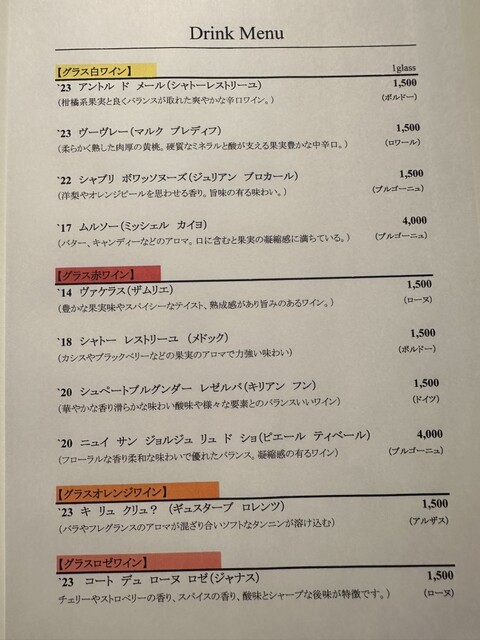 Drink Menu
【グラス白ワイン】 1glass
`23 アントル ド メール(シャトーレストリーユ) 1,500
(柑橘系果実と良くバランスが取れた爽やかな辛口ワイン。) (ボルドー)
`23 ヴーヴレー(マルク ブレディフ) 1,500
(柔らかく熟した肉厚の黄桃。硬質なミネラルと酸が支える果実豊かな中辛口。) (ロワール)
`22 シャブリ ボワッソヌーズ(ジュリアン ブロカール) 1,500
(洋梨やオレンジピールを思わせる香り。旨味の有る味わい。) (ブルゴーニュ)
`17 ムルソー(ミッシェル カイヨ) 4,000
(バター、キャンディーなどのアロマ。口に含むと果実の凝縮感に満ちている。) (ブルゴーニュ)
【グラス赤ワイン】
`14 ヴァケラス(ザムリエ) 1,500
(豊かな果実味やスパイシーなテイスト、熟成感があり旨みのあるワイン。) (ローヌ)
`18 シャトー レストリーユ (メドック) 1,500
(カシスやブラックベリーなどの果実のアロマで力強い味わい) (ボルドー)
`20 シュペートブルグンダー レゼルバ(キリアン フン) 1,500
(華やかな香り滑らかな味わい酸味や様々な要素とのバランスいいワイン) (ドイツ)
`20 ニュイ サン ジョルジュ リュ ド ショ(ピエール ティベール) 4,000
(フローラルな香り柔和な味わいで優れたバランス。凝縮感の有るワイン) (ブルゴーニュ)
【グラスオレンジワイン】
`23 キ リュ クリュ? (ギュスターブ ロレンツ) 1,500
(バラやフレグランスのアロマが混ざり合いソフトなタンニンが溶け込む) (アルザス)
【グラスロゼワイン】
`23 コート デュ ローヌ ロゼ(ジャナス) 1,500
チェリーやストロベリーの香り、スパイスの香り、酸味とシャープな後味が特徴です。) (ローヌ)